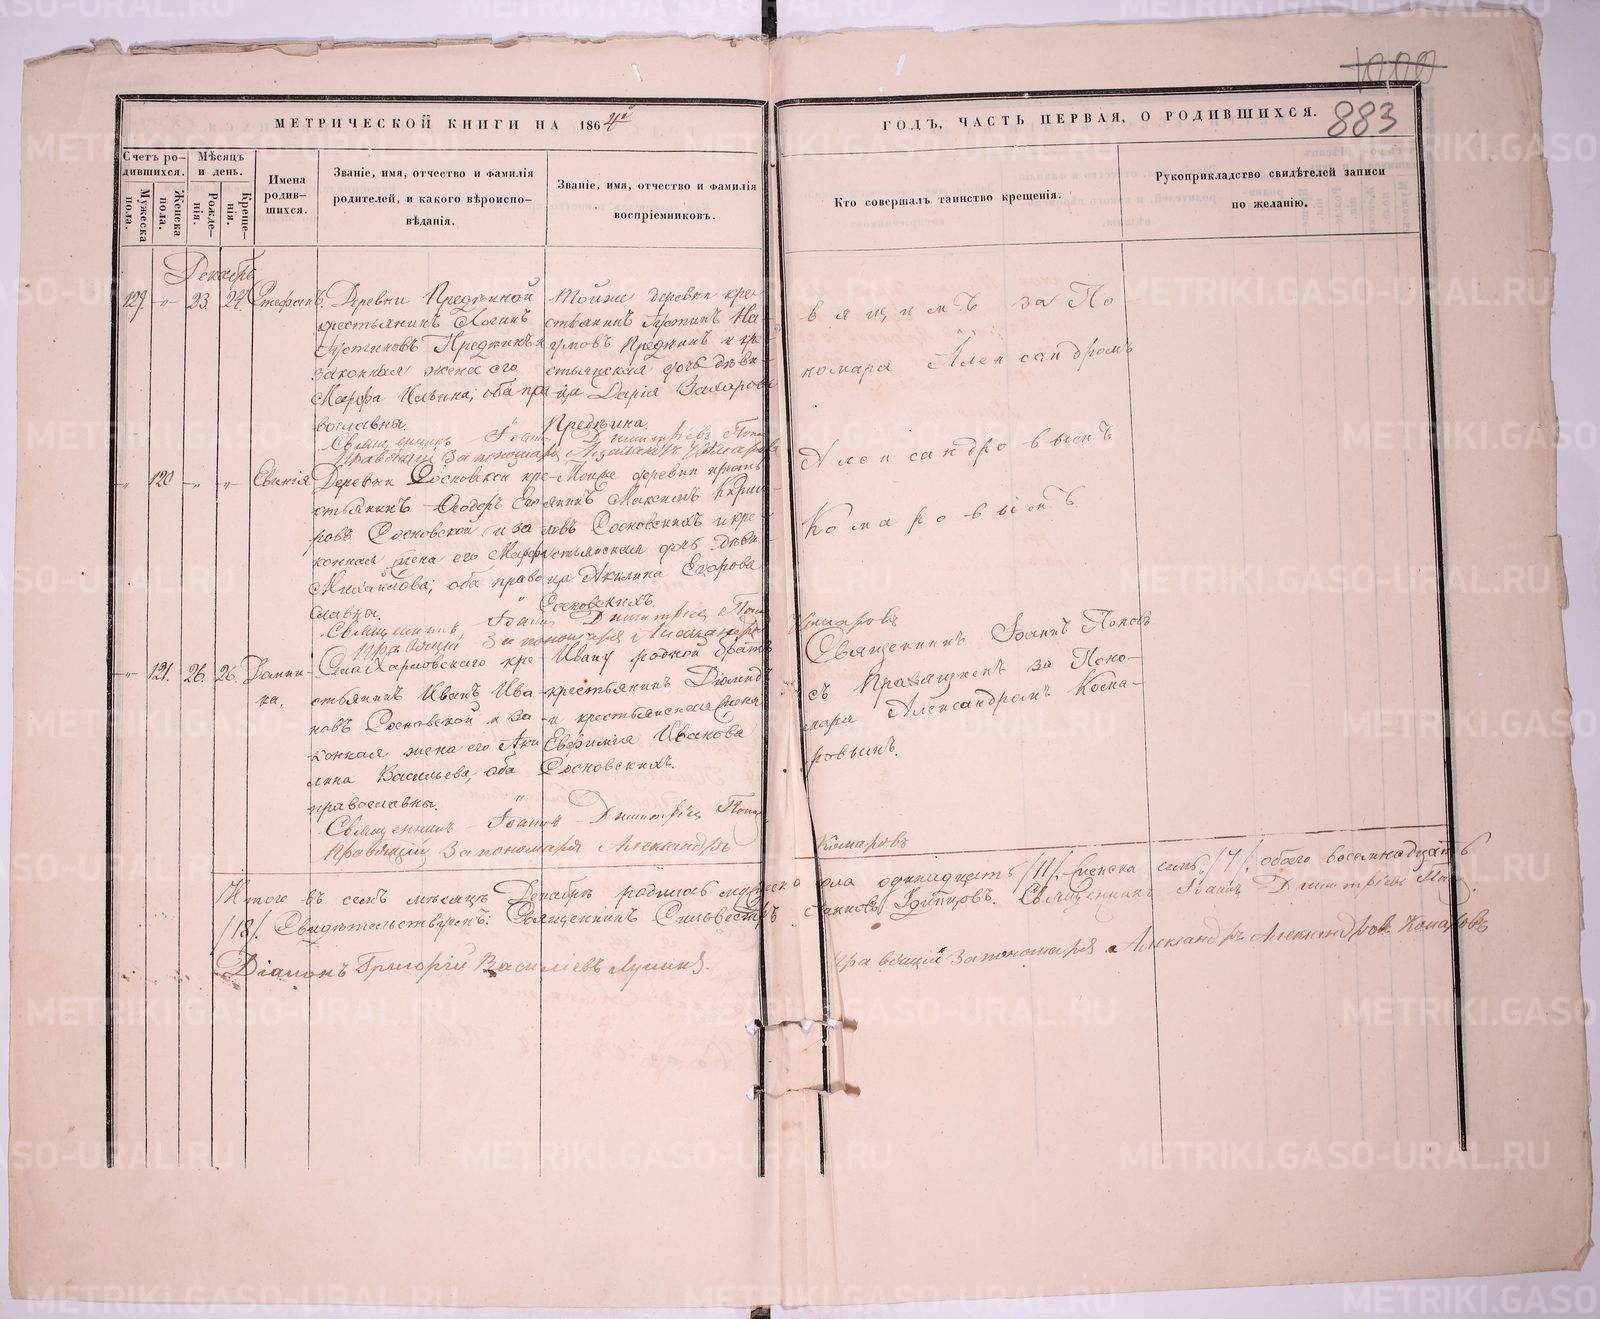 1000
883
МЕТРИЧЕСКОЙ КНИГИ НА 1864й
ГОДЪ, ЧАСТЬ ПЕРВАЯ, О РОДИВШИХСЯ.
Счетъ родившихся.
Мужеска пола.
Женска пола.
Мѣсяцъ и день.
Рожденія.
Крещенія.
Имена родившихся.
Званіе, имя, отчество и фамилія
родителей, и какого вѣроиспо-
вѣданія.
Званіе, имя, отчество и фамилія
воспріемниковъ.
Кто совершалъ таинство крещенія.
Рукоприкладство свидѣтелей записи
по желанію.
Декабрь
129. " 23. 24. Стефанъ.
Деревни
крестьянинъ Логинъ
законная жена его
Марфа Ильина, оба пра-
вославны.
Тойже деревни кре-
стьянинъ Густинъ На-
умовъ и кре-
стьянская дочь дѣви-
ца Дарія Захарова
Священникъ Іоаннъ Димитріевъ Поповъ
Правящій за пономаря Александръ Комаровъ
вящимъ за По
номаря Александромъ
Александровымъ
Комаровымъ
" 120 " " Евгенія
Деревни Сосновской кре-
стьянинъ Ѳеодоръ Его-
ровъ Сосновской и за
конная жена его Марфа
Михайлова, оба право
славны.
Тойже деревни кресть
янинъ Максимъ Кирил-
ловъ Сосновскихъ и кре-
стьянская дочь дѣви-
ца Акилина Егорова
Сосновскихъ.
Священникъ Іоаннъ Димитріевъ Поповъ
Правящій за пономаря Александръ
Комаровъ
" 121. 26. 26. Домни-
ка.
Села Харловского кре-
стьянинъ Иванъ Ива
новъ Сосновской и за
конная жена его Аки
лина Васильева, оба
православны.
Ивану родной братъ
крестьянинъ Діомидъ
и крестьянская жена
Евфимія Иванова
Сосновскихъ.
Священникъ Іоаннъ Поповъ
съ Правящимъ за Поно-
маря Александромъ Кома-
ровымъ.
Священникъ Іоаннъ Димитріевъ Поповъ
Правящій за пономаря Александръ
Комаровъ
Итого въ семъ мѣсяцѣ Декабрѣ родилось мужеска пола одинадцать /11/. женска семь /7/. обоего восемнадцать
/18/. Свидѣтельствуемъ: Священникъ Сильвестръ Священникъ Іоаннъ Димитріевъ Поповъ.
Діаконъ Григорій Василіевъ Лукинъ.
Правящій за пономаря Александръ Александровъ Комаровъ